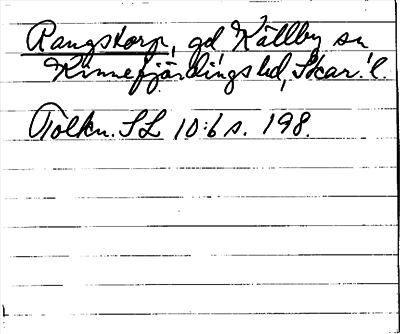 Rangstorp, gd Källby sn
Kinnefjärdings hd, Skar. l.
Tolkn. SL 10:6 s. 198.